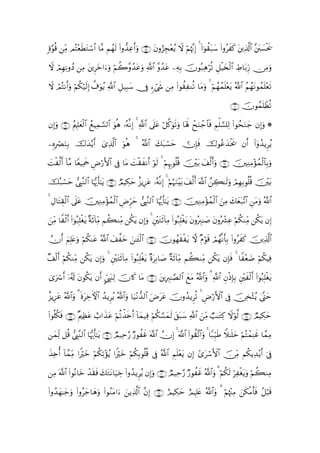 قُوَّةٍ مِّن ٱسْتَطَعْتُم مَّا لَهُم وَأَعِدُّوا۟ ۝ يُعْجِزُونَ لَا إِنَّهُمْ ۚ سَبَقُوٓا۟ كَفَرُوا۟ ٱلَّذِينَ يَحْسَبَنَّ
لَا دُونِهِمْ مِن وَءَاخَرِينَ وَعَدُوَّكُمْ ٱللَّهِ عَدُوَّ بِهِۦ تُرْهِبُونَ ٱلْخَيْلِ رِّبَاطِ وَمِن
لَا وَأَنتُمْ إِلَيْكُمْ يُوَفَّ ٱللَّهِ سَبِيلِ فِى شَىْءٍ مِن تُنفِقُوا۟ وَمَا ۚ يَعْلَمُهُمْ ٱللَّهُ تَعْلَمُونَهُمُ
۝ تُظْلَمُونَ
وَإِن ۝ ٱلْعَلِيمُ ٱلسَّمِيعُ هُوَ إِنَّهُۥ ۚ ٱللَّهِ عَلَى وَتَوَكَّلْ لَهَا فَٱجْنَحْ لِلسَّلْمِ جَنَحُوا۟ وَإِن *
بِنَصْرِهِۦ أَيَّدَكَ ٱلَّذِىٓ هُوَ ۚ ٱللَّهُ حَسْبَكَ فَإِنَّ يَخْدَعُوكَ أَن يُرِيدُوٓا۟
أَلَّفْتَ مَّآ جَمِيعًا ٱلْأَرْضِ فِى مَا أَنفَقْتَ لَوْ ۚ قُلُوبِهِمْ بَيْنَ وَأَلَّفَ ۝ وَبِٱلْمُؤْمِنِينَ
حَسْبُكَ ٱلنَّبِىُّ يَٰٓأَيُّهَا ۝ حَكِيمٌ عَزِيزٌ إِنَّهُۥ ۚ بَيْنَهُمْ أَلَّفَ ٱللَّهَ وَلَٰكِنَّ قُلُوبِهِمْ بَيْنَ
ٱلْقِتَالِ عَلَى ٱلْمُؤْمِنِينَ حَرِّضِ ٱلنَّبِىُّ يَٰٓأَيُّهَا ۝ ٱلْمُؤْمِنِينَ مِنَ ٱتَّبَعَكَ وَمَنِ ٱللَّهُ
مِّنَ أَلْفًا يَغْلِبُوٓا۟ مِّا۟ئَةٌ مِّنكُم يَكُن وَإِن ۚ مِا۟ئَتَيْنِ يَغْلِبُوا۟ صَٰبِرُونَ عِشْرُونَ مِّنكُمْ يَكُن إِن
أَنَّ وَعَلِمَ عَنكُمْ ٱللَّهُ خَفَّفَ ٱلْـَٰٔنَ ۝ يَفْقَهُونَ لَّا قَوْمٌ بِأَنَّهُمْ كَفَرُوا۟ ٱلَّذِينَ
أَلْفٌ مِّنكُمْ يَكُن وَإِن ۚ مِا۟ئَتَيْنِ يَغْلِبُوا۟ صَابِرَةٌ مِّا۟ئَةٌ مِّنكُم يَكُن فَإِن ۚ ضَعْفًا فِيكُمْ
أَسْرَىٰ لَهُۥٓ يَكُونَ أَن لِنَبِىٍّ كَانَ مَا ۝ ٱلصَّٰبِرِينَ مَعَ وَٱللَّهُ ۗ ٱللَّهِ بِإِذْنِ أَلْفَيْنِ يَغْلِبُوٓا۟
عَزِيزٌ وَٱللَّهُ ۗ ٱلْءَاخِرَةَ يُرِيدُ وَٱللَّهُ ٱلدُّنْيَا عَرَضَ تُرِيدُونَ ۚ ٱلْأَرْضِ فِى يُثْخِنَ حَتَّىٰ
فَكُلُوا۟ ۝ عَظِيمٌ عَذَابٌ أَخَذْتُمْ فِيمَآ لَمَسَّكُمْ سَبَقَ ٱللَّهِ مِّنَ كِتَٰبٌ لَّوْلَا ۝ حَكِيمٌ
لِّمَن قُل ٱلنَّبِىُّ يَٰٓأَيُّهَا ۝ رَّحِيمٌ غَفُورٌ ٱللَّهَ إِنَّ ۚ ٱللَّهَ وَٱتَّقُوا۟ ۚ طَيِّبًا حَلَٰلًا غَنِمْتُمْ مِمَّا
أُخِذَ مِّمَّآ خَيْرًا يُؤْتِكُمْ خَيْرًا قُلُوبِكُمْ فِى ٱللَّهُ يَعْلَمِ إِن ٱلْأَسْرَىٰٓ مِّنَ أَيْدِيكُم فِىٓ
مِن ٱللَّهَ خَانُوا۟ فَقَدْ خِيَانَتَكَ يُرِيدُوا۟ وَإِن ۝ رَّحِيمٌ غَفُورٌ وَٱللَّهُ ۗ لَكُمْ وَيَغْفِرْ مِنكُمْ
وَجَٰهَدُوا۟ وَهَاجَرُوا۟ ءَامَنُوا۟ ٱلَّذِينَ إِنَّ ۝ حَكِيمٌ عَلِيمٌ وَٱللَّهُ ۗ مِنْهُمْ فَأَمْكَنَ قَبْلُ